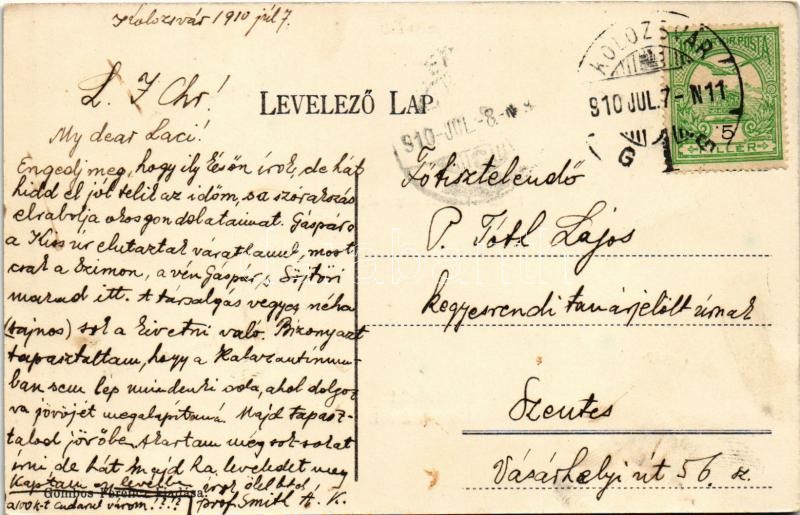 Kolozsvár 1910 júl 7.
L. J. Chr!
LEVELEZŐ LAP
My dear Laci!
Engedj meg, hogy ily későn írok, de hát
hidd el jól telik az időm, s a szórakozás
elrabolja okos gondolataimat. Gáspár
a Kiss úr elutaztak váratlanul, most
csak a Szimon, a vén Gáspár s Söjtöri
marad itt. A társalgás vegyes, néha
(sajnos) sok a kivetni való. Bizony azt
tapasztaltam, hogy a Kalazantinum-
ban sem lép mindenki oda, ahol dolgoz-
va jövőjét megalapítaná. Majd tapasz-
talod jövőbe. Akartam még sok-sokat
írni, de hát majd ha leveledet meg
kaptam
írok ölel
prof. Smith A. K.
a 100 k-t várom???
Gombos Ferencz kiadása.
Főtisztelendő
P. Tóth Lajos
kegyesrendi tanárjelölt úrnak
Szentes
Vásárhelyi út 56. sz.
KOLOZSVÁR
910 JUL. 7 - N 11
910 - JUL. - 8. - N
MAGYAR POSTA
5
FILLÉR